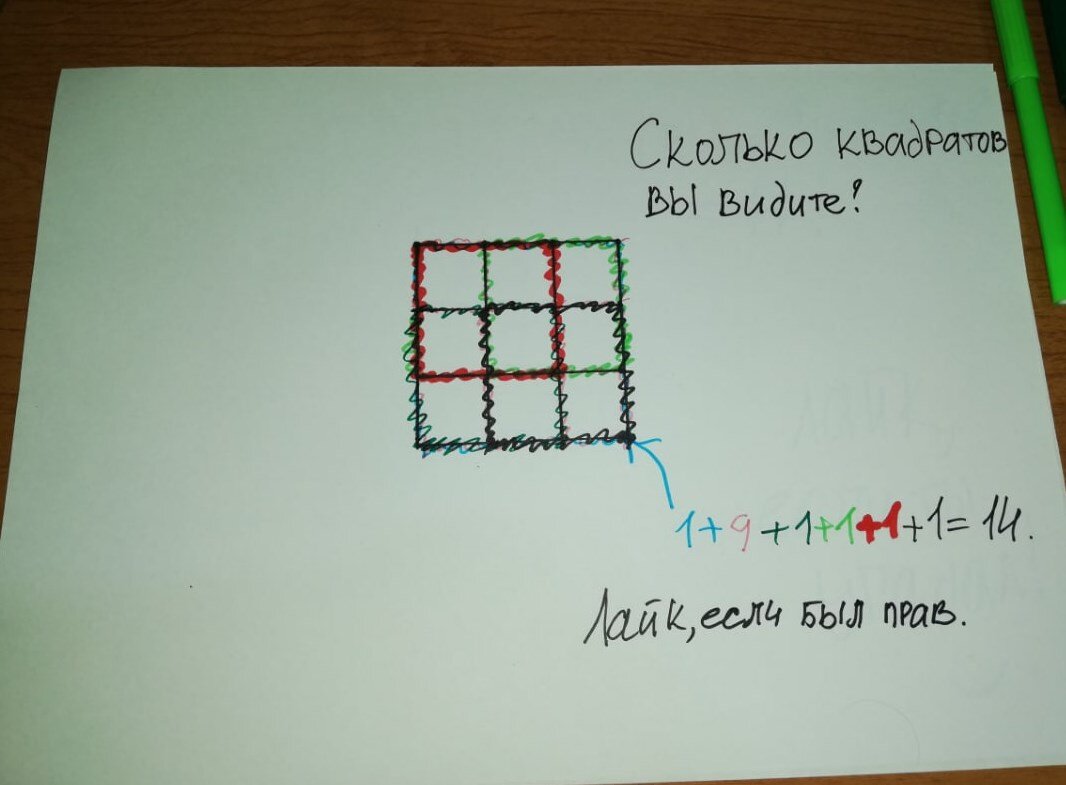 Сколько квадратов
вы видите?
1+9+1+1+1+1=14.
Лайк, если был прав.